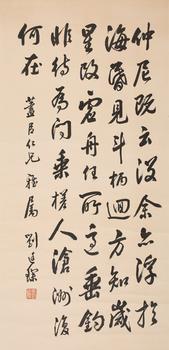 仲尼既云没余亦浮於
海昏見斗柄迴方知歲
星改虛舟任所適垂釣
非待為問乘槎人滄洲復
何在
蓋臣仁兄雅屬
劉廷琛